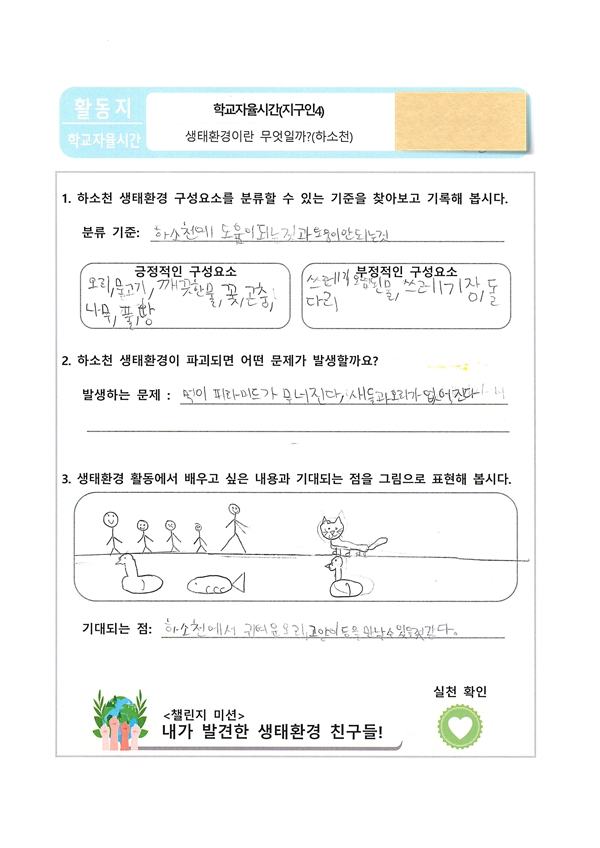 활동지
학교자율시간
학교자율시간(지구인4)
생태환경이란 무엇일까?(하소천)
1. 하소천 생태환경 구성요소를 분류할 수 있는 기준을 찾아보고 기록해 봅시다.
분류 기준: 하소천에 도움이되는것과 도움이안되는것
긍정적인 구성요소
오리, 물고기, 깨끗한물, 꽃, 곤충,
나무, 풀, 땅
부정적인 구성요소
쓰레기 오염된물, 쓰레기장, 돌
다리
2. 하소천 생태환경이 파괴되면 어떤 문제가 발생할까요?
발생하는 문제 : 먹이 피라미드가 무너진다, 새들과오리가 없어진다
3. 생태환경 활동에서 배우고 싶은 내용과 기대되는 점을 그림으로 표현해 봅시다.
기대되는 점: 하소천에서 귀여운오리,고양이등을 만날수 있을것같다.
실천 확인
<챌린지 미션>
내가 발견한 생태환경 친구들!